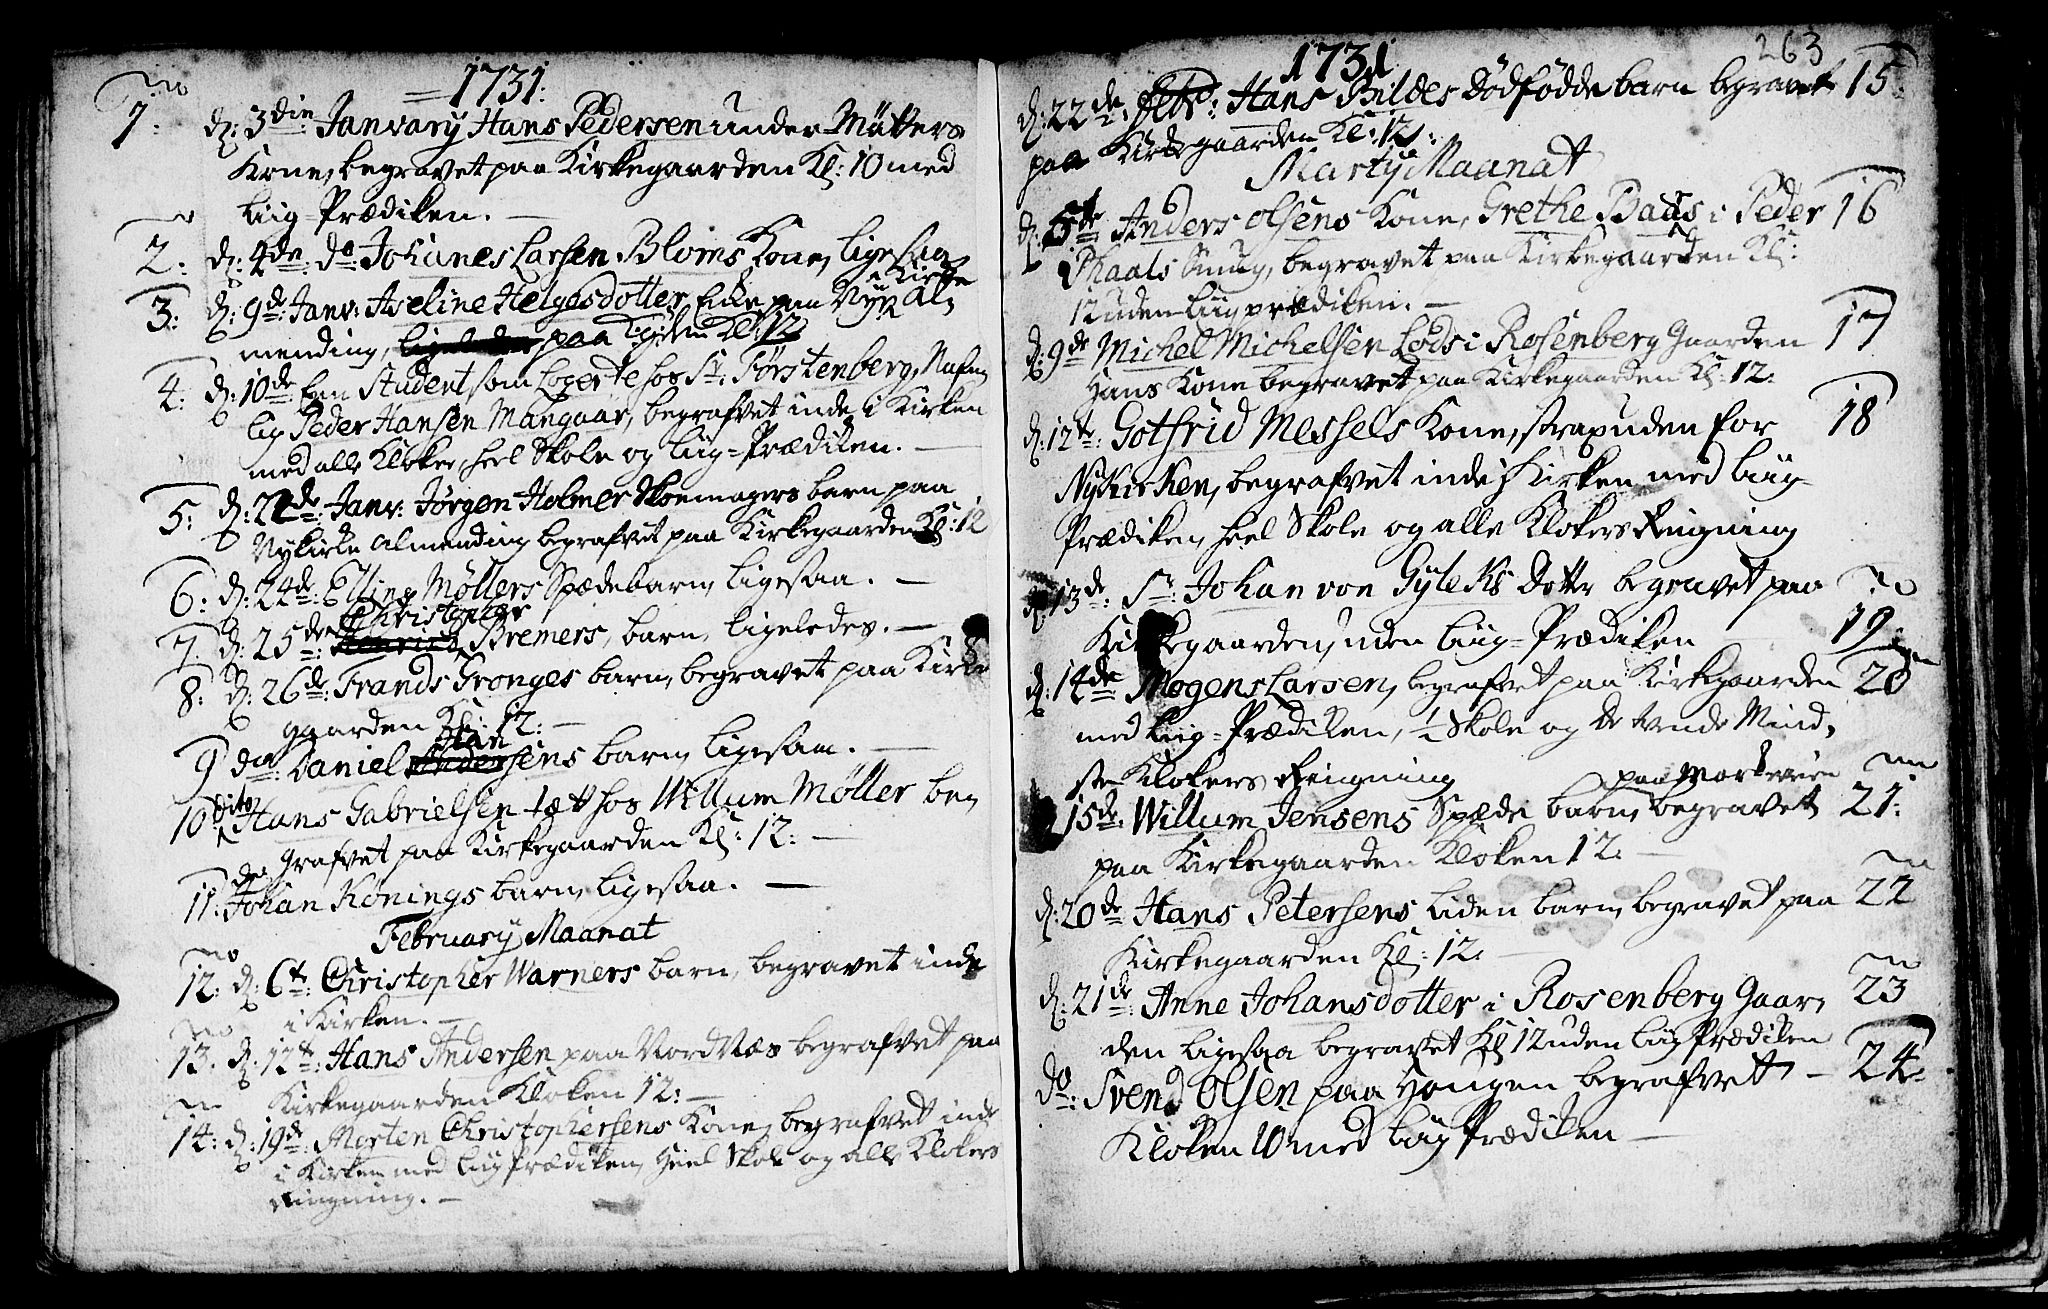 1731.
No
1. d: 3die: Janvary Hans Pedersen under Møllers
Kone, begravet paa Kirkegaarden Kl: 10 med
Liig-Prædiken. —
2. d: 4de: do: Johanes Larsen Bloms Kone, ligesaa
3. d: 9de Janv: Aseline Helgesdotter, Enke paa Nyekirke Al-
mending, paa Kl: 12
4. d: 10de: Een Student som Logerte hos Sr: Förstenberg, Nafn-
lig Peder Hansen Mangaar, begrafvet inde i Kirken
med alle Kloker, heel Skole og Liig-Prædiken. —
5. d: 22de: Janv: Jørgen Holmer Skoemagers barn paa
Nykirke Almending begrafvet paa Kirkegaarden Kl: 12
6. d: 24de: Elling Møllers Spædebarn, ligesaa. —
7. d: 25de: Christopher Bremers, barn, ligeledes. —
8. d: 26de: Frands Gronges barn, begravet paa Kirke
gaarden Kl: 12: —
9 do: Daniel Hansens barn, ligesaa. —
10 dito Hans Gabrielsen tæt hos Willum Møller be-
grafvet paa Kirkegaarden Kl: 12: —
11. do Johan Konings barn, ligesaa. —
February Maanat
No
12. d: 6te: Christopher Warners barn, begravet inde
i Kirken. —
No
13. d: 12te: Hans Andersen paa Nordnæs begrafvet paa
Kirkegaarden Kloken 12: —
14: d: 19de: Morten Christophersens Kone, begrafvet inde
i Kirken med Liig Prædiken, Heel Skole og alle Klokers
Ringning. —
263
1731
d: 22de: Febr: Hans Bildes Dödfödde barn begravet 15.
paa Kirkegaarden Kl: 12:
Marty Maanat
d: 5te Anders Olsens Kone, Grethe Baads i Peder 16
Smug, begravet paa Kirkegaarden Kl:
12 uden Liig prædiken. —
d: 9de Michel Michelsen Lods i Rosenberg Gaarden 17
Hans Kone begravet paa Kirkegaarden Kl: 12:
d: 12te: Gotfrid Messels Kone, strax uden for 18
Nykirken, begrafvet inde i Kirken med Liig-
Prædiken, heel Skole og alle Klokers Ringning
d: 13de: Sr: Johan von Gyleks Dotter begravet paa No
Kirkegaarden, uden Liig-Prædiken 19.
d: 14de Mogens Larsen, begrafvet paa Kirkegaarden 20
med Liig-Prædiken, ½ Skole og de tvende Mind-
ste Klokers Ringning
paa Markeveien
15de: Willum Jensens Spæde barn, begravet 21.
paa Kirkegaarden Kloken 12. —
d: 20de Hans Petersens liden barn, begravet paa 22
Kirkegaarden Kl: 12. —
d: 21de Anne Johansdotter i Rosenberg Gaar- 23
den ligesaa begravet Kl 12 uden Liig Prædiken
do: Svend Olsen paa Hougen begrafvet — 24.
Kloken 10 med Liig Prædiken —